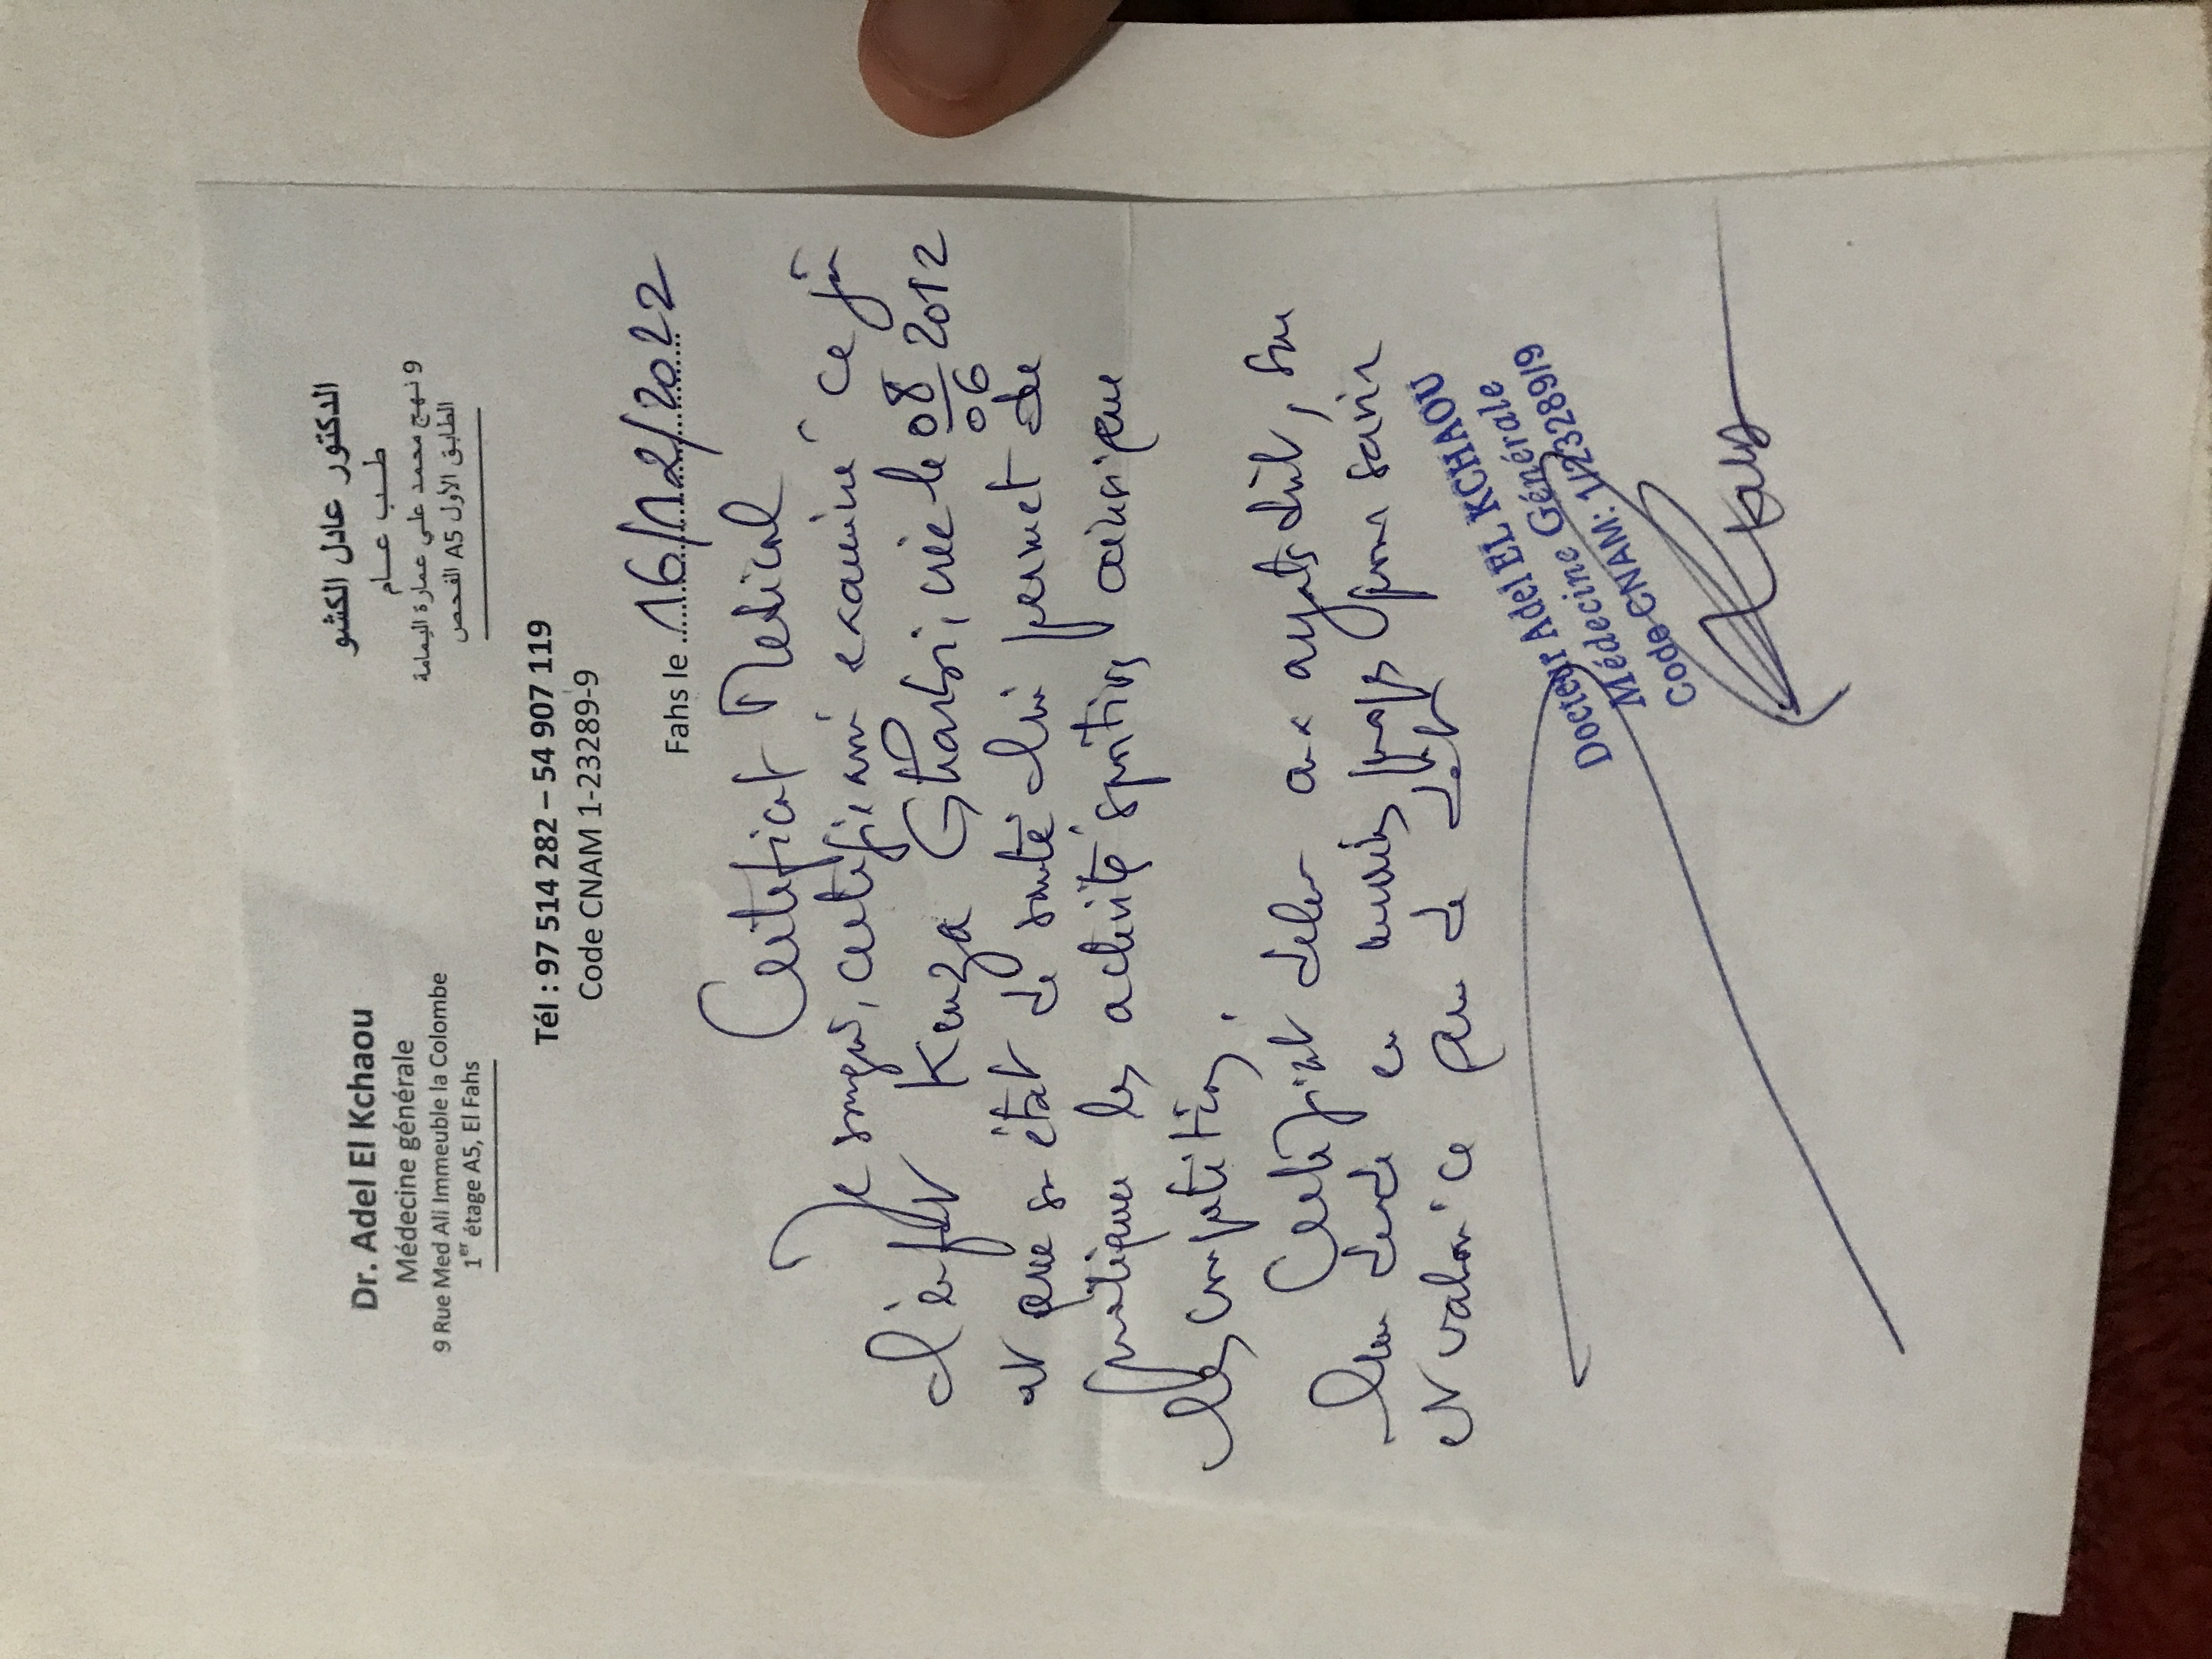 Dr. Adel El Kchaou
Médecine générale
9 Rue Med Ali Immeuble la Colombe
1er étage A5, El Fahs
الدكتور عادل الكشو
طـب عـام
9 نهج محمد علي عمارة اليمامة
الطابق الأول A5 الفحص
Tél : 97 514 282 – 54 907 119
Code CNAM 1-23289-9
Fahs le 16/12/2022
Certificat Médical
Je certifie examiné ce
l'enfant Kenza Gharbi, née le 08/06 2012
et que état de santé lui permet de
pratiquer les activité sportives ainsi que
les compétitions.
Certificat aux ayants droit, sur
et valoir ce que de
Docteur Adel EL KCHAOU
Médecine Générale
Code CNAM: 1/23289/9